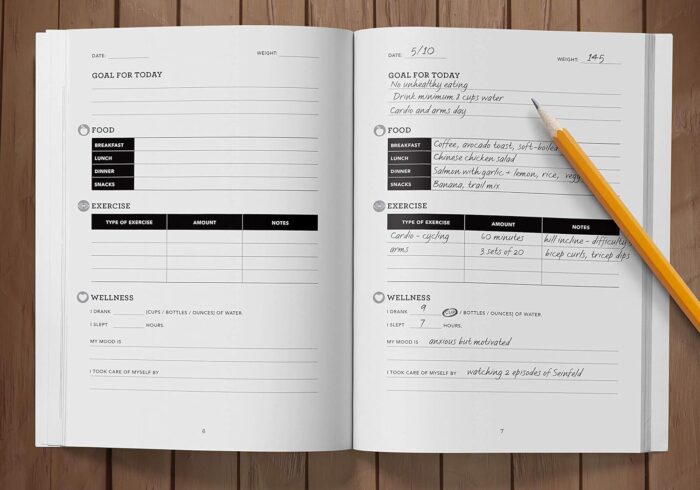 DATE:
WEIGHT:
GOAL FOR TODAY
FOOD
BREAKFAST
LUNCH
DINNER
SNACKS
EXERCISE
TYPE OF EXERCISE AMOUNT NOTES
WELLNESS
I DRANK (CUPS / BOTTLES / OUNCES) OF WATER.
I SLEPT HOURS.
MY MOOD IS
I TOOK CARE OF MYSELF BY
6
DATE: 5/10
WEIGHT: 145
GOAL FOR TODAY
No unhealthy eating
Drink minimum 8 cups water
Cardio and arms day
FOOD
BREAKFAST Coffee, avocado toast, soft-boiled
LUNCH Chinese chicken salad
DINNER Salmon with garlic + lemon, rice,
SNACKS Banana, trail mix
EXERCISE
TYPE OF EXERCISE AMOUNT NOTES
Cardio - cycling 60 minutes hill incline - difficulty
arms 3 sets of 20 bicep curls, tricep dips
WELLNESS
I DRANK 9 (CUPS / BOTTLES / OUNCES) OF WATER.
I SLEPT 7 HOURS.
MY MOOD IS anxious but motivated
I TOOK CARE OF MYSELF BY watching 2 episodes of Seinfeld
7